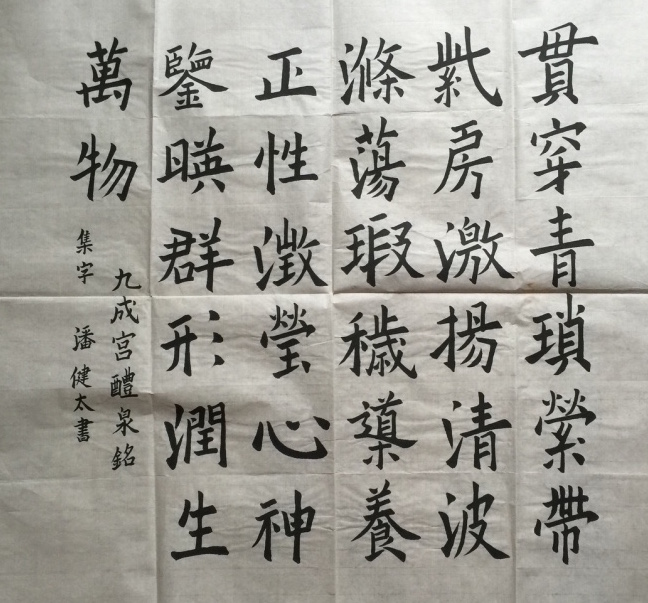 貫穿青瑣縈帶
紫房激揚清波
滌蕩瑕穢導養
正性澂瑩心神
鑒暎群形潤生
萬物
九成宮醴泉銘
集字 潘健太書